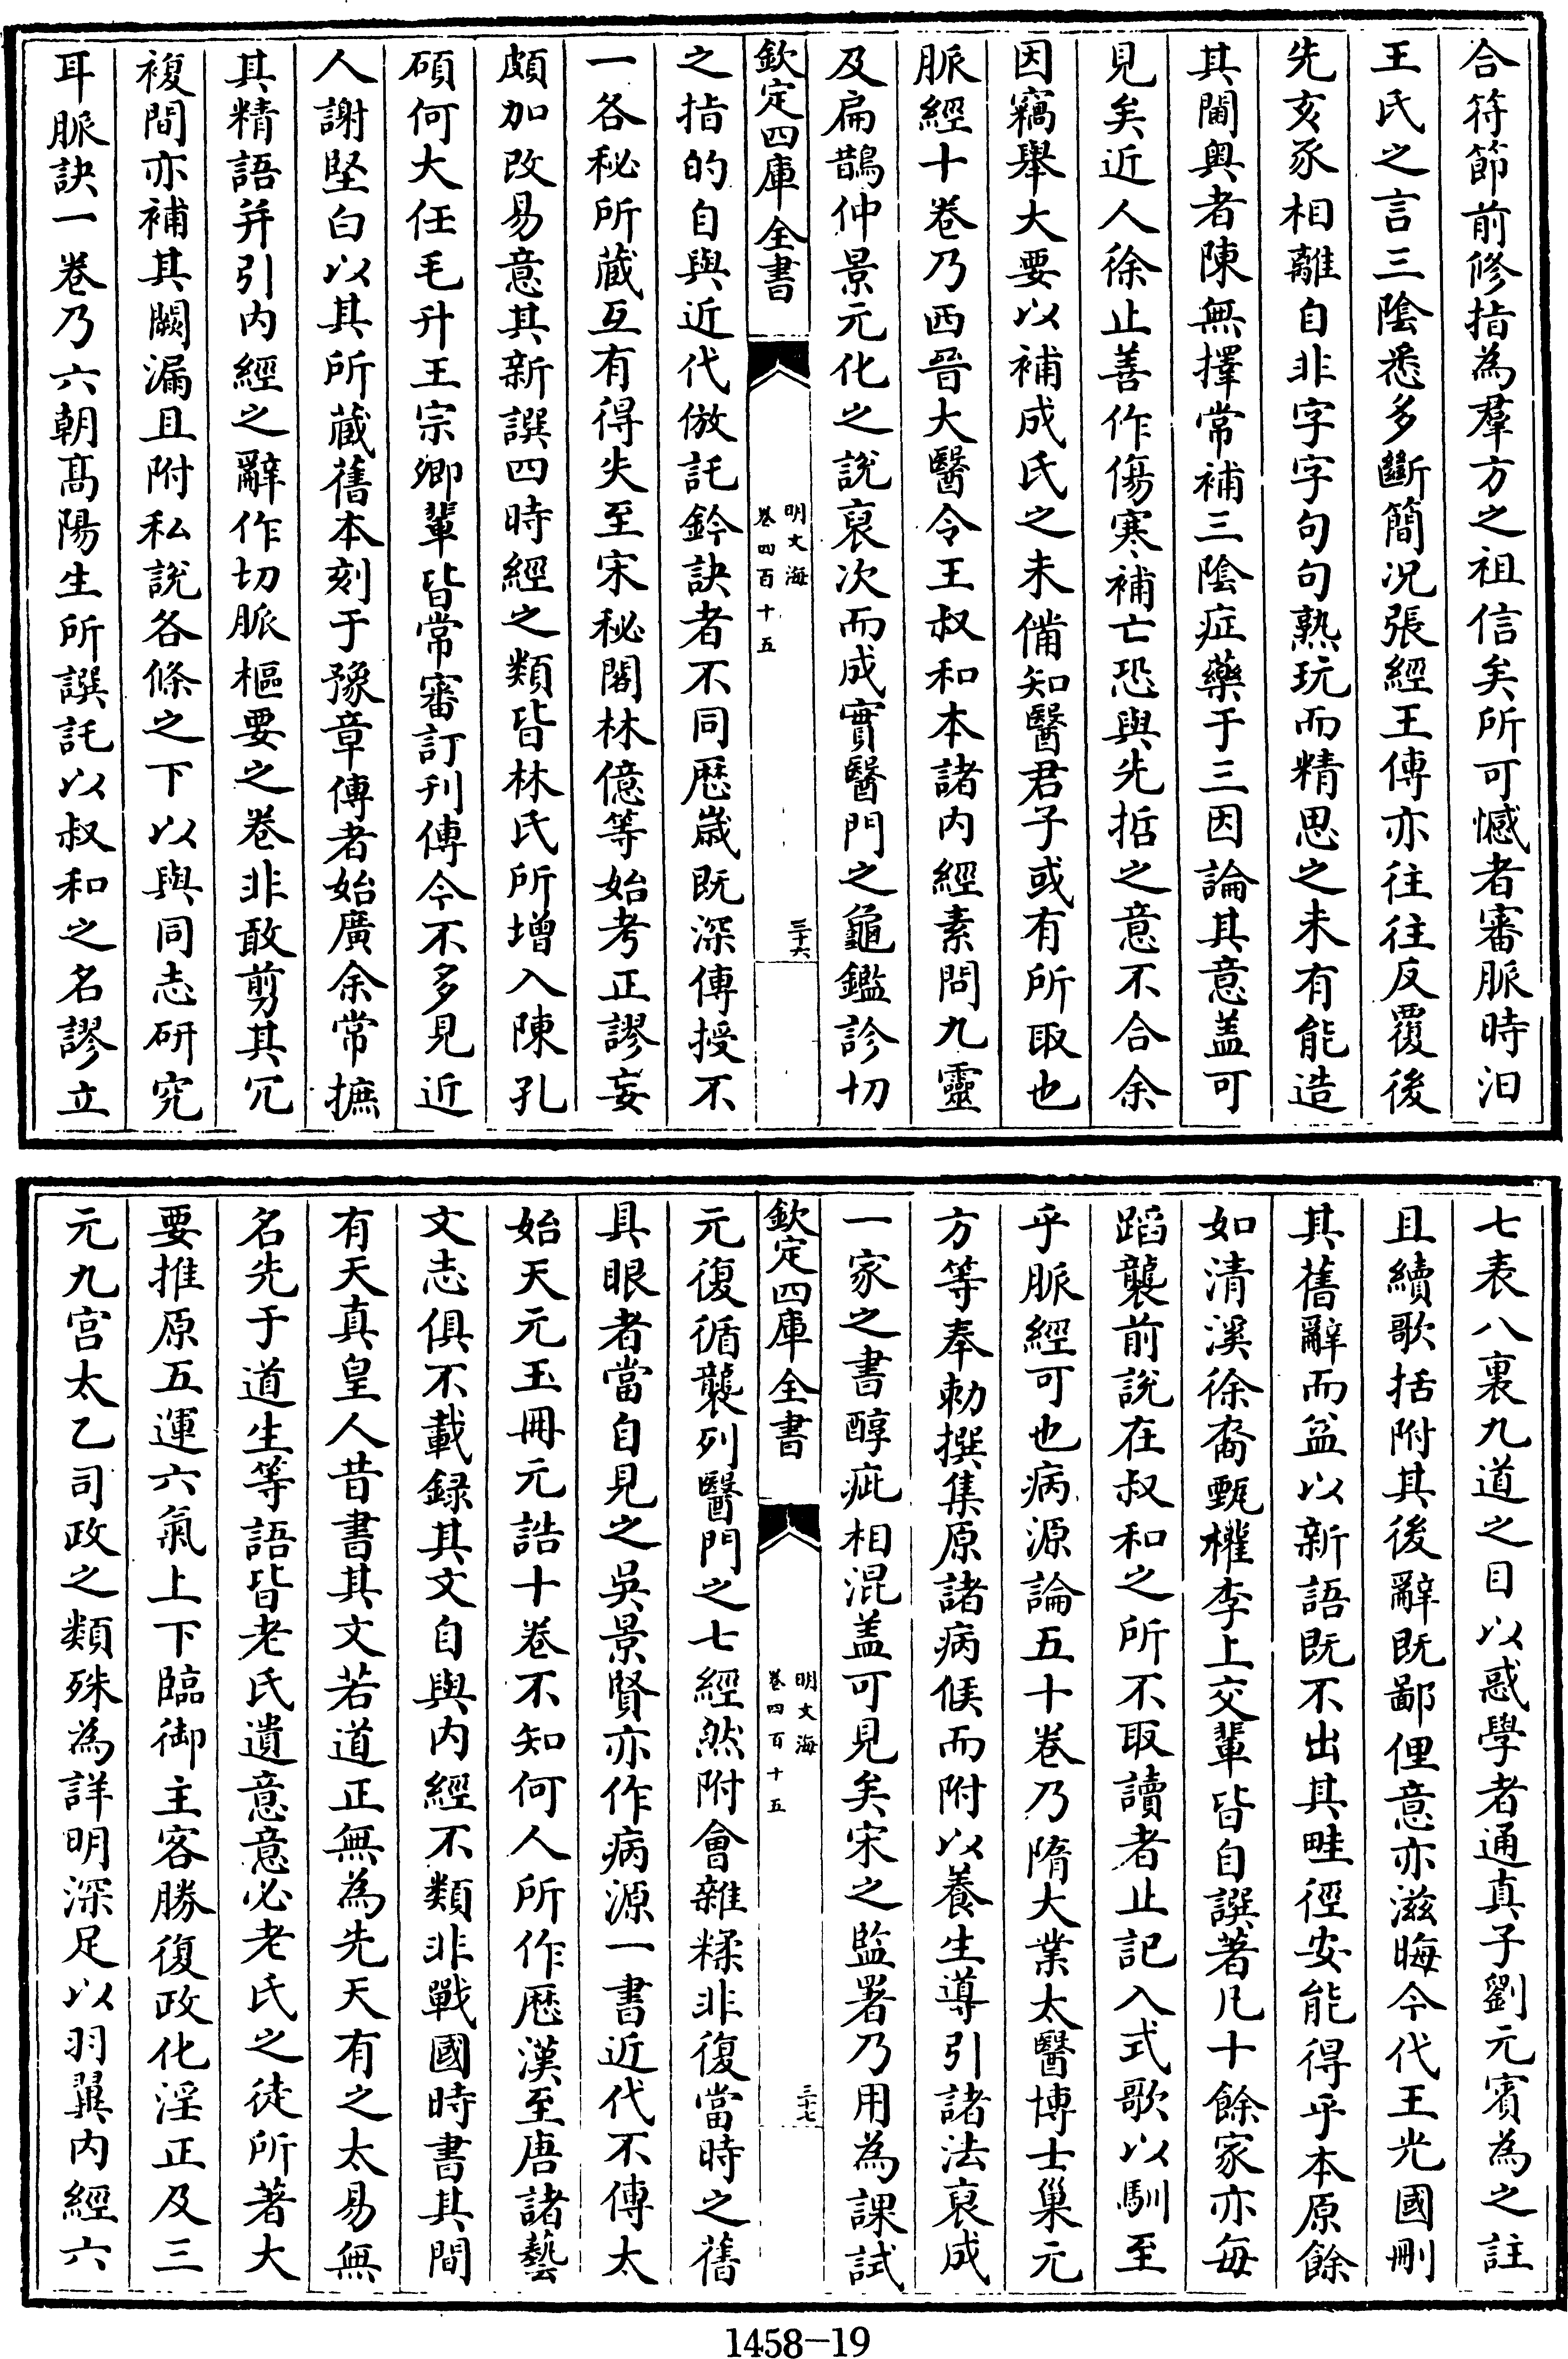 合符節前修指為羣方之祖信矣所可憾者審脈時汨
王氏之言三陰悉多斷簡况張經王傳亦往往反覆後
先亥豕相離自非字字句句熟玩而精思之未有能造
其閫奥者陳無擇常補三陰症藥于三因論其意盖可
見矣近人徐止善作傷寒補亡恐與先哲之意不合余
因竊舉大要以補成氏之未備知醫君子或有所取也
脈經十卷乃西晉大醫令王叔和本諸内經素問九靈
及扁鵲仲景元化之說裒次而成實醫門之龜鑑診切
欽定四庫全書
明文海
卷四百十五
三十六
之指的自與近代倣託鈐訣者不同歴歲既深傳授不
一各秘所蔵互有得失至宋秘閣林億等始考正謬妄
頗加改易意其新譔四時經之類皆林氏所增入陳孔
碩何大任毛升王宗卿輩皆常審訂刊傳今不多見近
人謝堅白以其所蔵舊本刻于豫章傳者始廣余常摭
其精語并引内經之辭作切脈樞要之卷非敢剪其冗
複間亦補其闕漏且附私說各條之下以與同志研究
耳脈訣一卷乃六朝髙陽生所譔託以叔和之名謬立
七表八裏九道之目以惑學者通真子劉元賓為之註
且續歌括附其後辭既鄙俚意亦滋晦今代王光國刪
其舊辭而益以新語既不出其畦徑安能得乎本原餘
如清溪徐裔甄權李上交輩皆自譔著凡十餘家亦每
蹈襲前說在叔和之所不取讀者止記入式歌以馴至
乎脈經可也病源論五十卷乃隋大業太醫博士巢元
方等奉勅撰集原諸病候而附以養生導引諸法裒成
一家之書醇疵相混盖可見矣宋之監署乃用為課試
欽定四庫全書
明文海
卷四百十五
三十七
元復循襲列醫門之七經然附會雜糅非復當時之舊
具眼者當自見之吳景賢亦作病源一書近代不傳太
始天元玉冊元誥十卷不知何人所作歴漢至唐諸藝
文志俱不載録其文自與内經不類非戰國時書其間
有天真皇人昔書其文若道正無為先天有之太易無
名先于道生等語皆老氏遺意意必老氏之徒所著大
要推原五運六氣上下臨御主客勝復政化淫正及三
元九宫太乙司政之類殊為詳明深足以羽翼内經六
1458-19